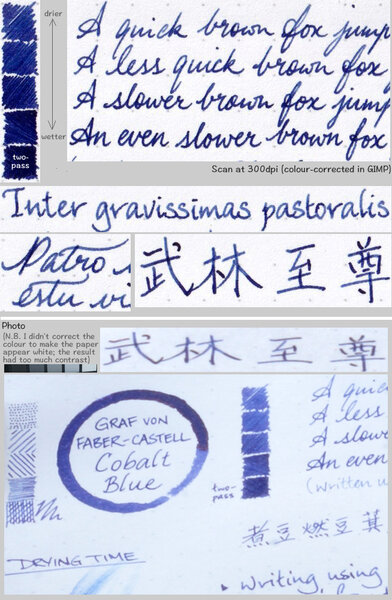 drier
wetter
two-pass
A quick brown fox jump
A less quick brown fox
A slower brown fox jump
An even slower brown fox
Scan at 300dpi (colour-corrected in GIMP)
Inter gravissimas pastoralis
Patro
estu vi
武林至尊
Photo
(N.B. I didn't correct the
colour to make the paper
appear white; the result
had too much contrast)
武林至尊
GRAF VON
FABER-CASTELL
Cobalt
Blue
two-
pass
A quic
A less
A slowe
An even
(written u
煮豆燃豆萁
DRYING TIME
writing using